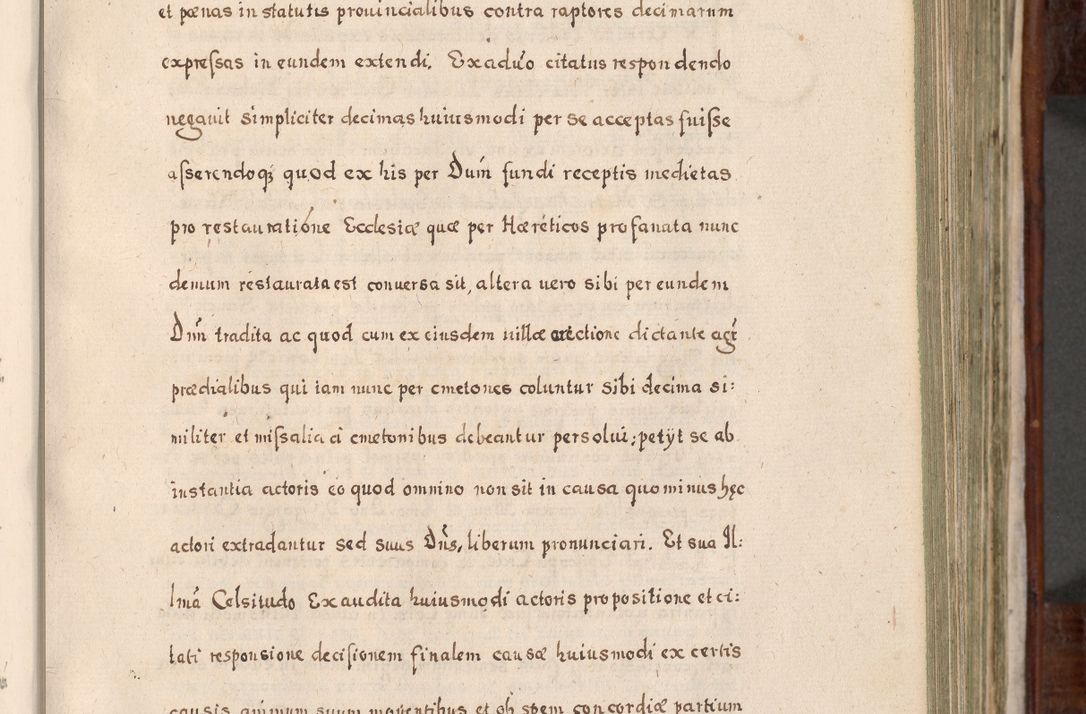 et pœnas in statutis prouincialibus contra raptores decimarum
expressas in eundem extendi. Ex aduó citatus respondendo
negauit simpliciter decimas huiusmodi per se acceptas fuisse
asserendoq̃ quod ex his per Dum̃ fundi receptis medietas
pro restauratióne Ecclesiæ quæ per Hæréticos profanata nunc
demum restaurata est conuersa sit, altera uero sibi per eundem
Dnm̃ tradita ac quod cum ex eiusdem uillæ erectione dictante agr̃
prædialibus qui iam nunc per cmetones coluntur sibi decima si:
militer et missalia á cmetonibus debeantur persolui; petijt se ab
instantia actoris eo quod omnino non sit in causa quominus hęc
actori extradantur sed suus Dñs, liberum pronunciari. Et sua Il:
lmã Celsitudo Exaudita huiusmodi actoris propositione et ci:
tati responsione decisionem finalem causæ huiusmodi ex certis
causis animum suum mouentibus et ob spem concordiæ partium